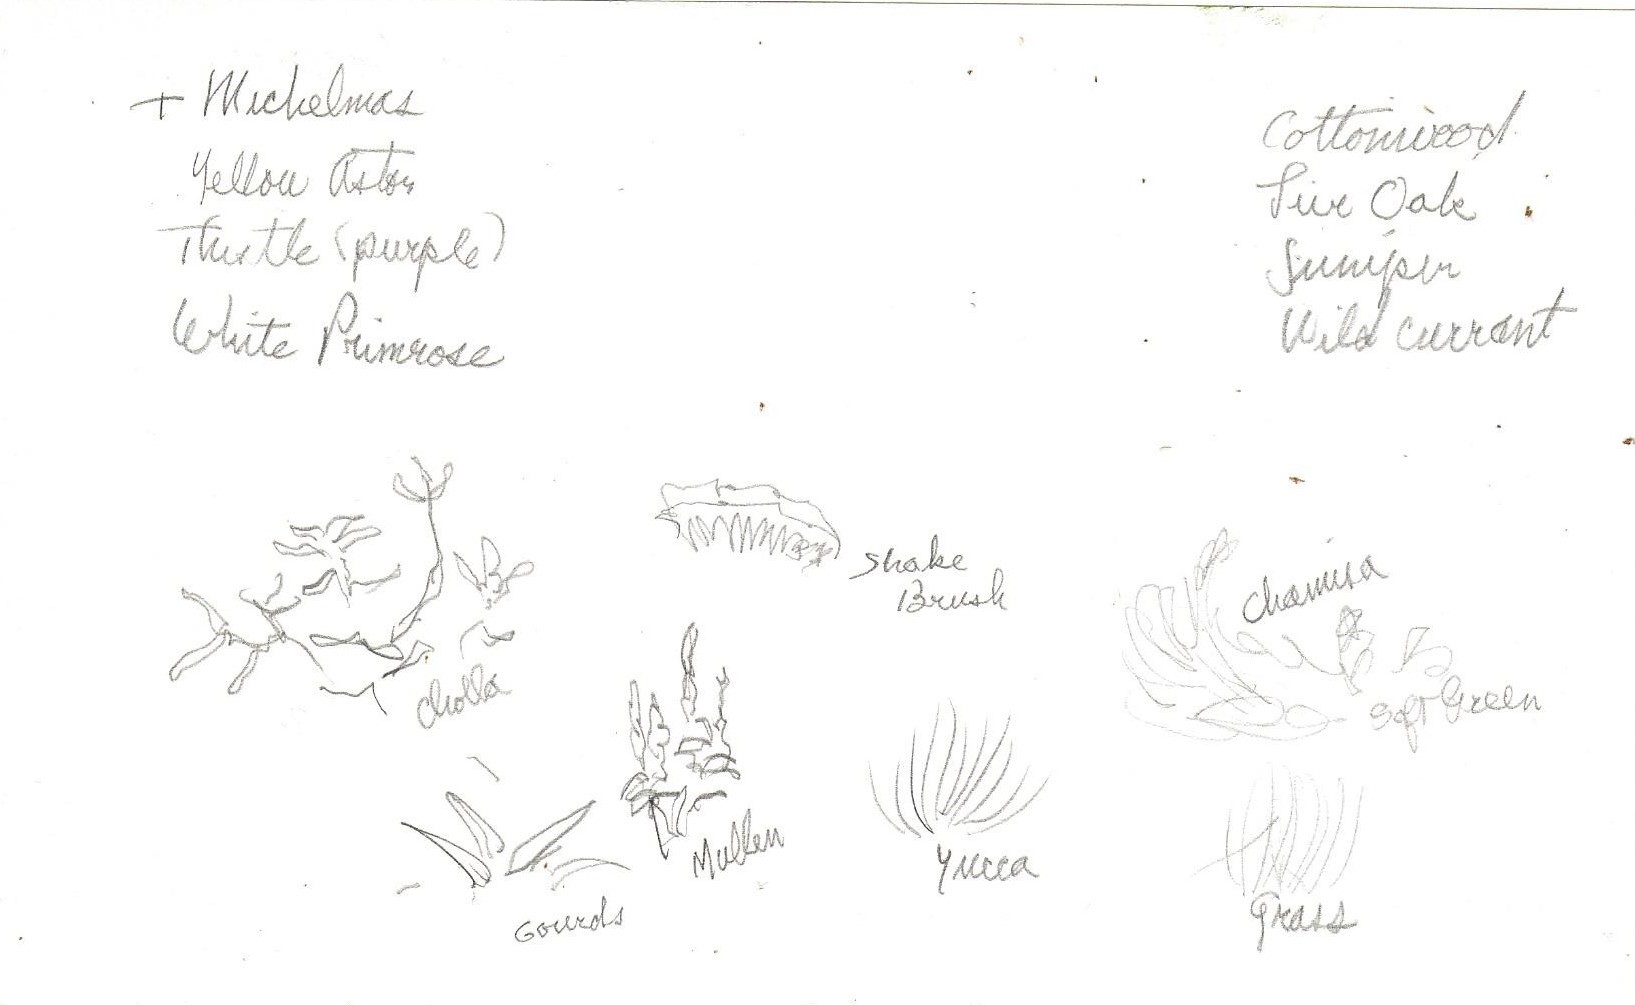 + Michelmas
Yellow Aston
Thistle (purple)
White Primrose
Cottonwood
Live Oak
Juniper
Wild Currant
Shake
Brush
Chamisa
Cholla
Soft Green
Mullen
Yucca
Gourds
Grass